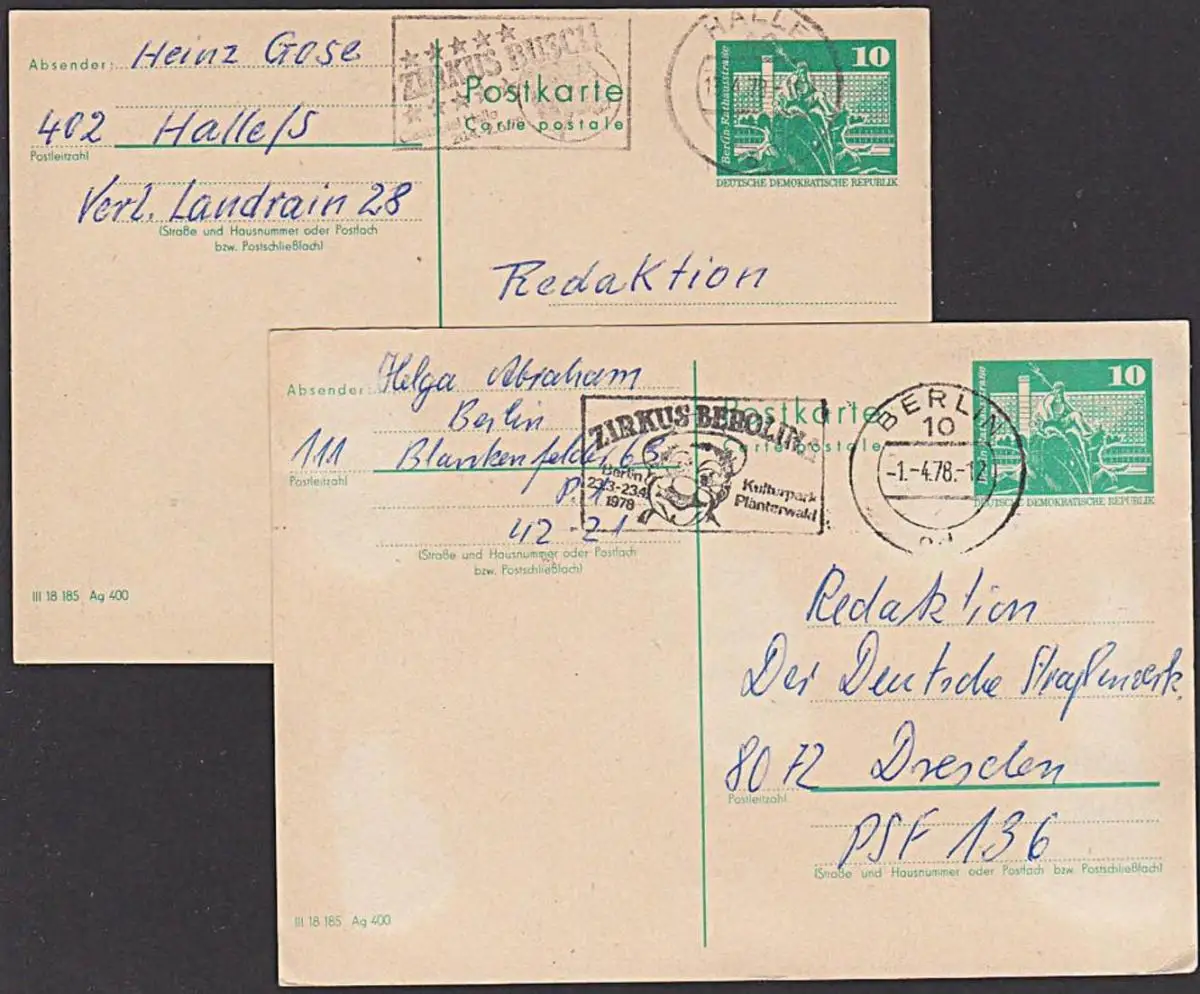 Absender: Heinz Gose
402 Halle/S
Postleitzahl
Verl. Landrain 28
(Straße und Hausnummer oder Postfach
bzw. Postschließfach)
ZIRKUS BUSCH
Postkarte
Carte postale
HALLE
10
Berlin-Rathausstraße
DEUTSCHE DEMOKRATISCHE REPUBLIK
Redaktion
III 18 185 Ag 400
Absender: Helga Abraham
Berlin
111 Blankenfelder 63
Postleitzahl
P. 1
42-21
(Straße und Hausnummer oder Postfach
bzw. Postschließfach)
ZIRKUS BEROLINA
Berlin
23.3.-23.4.
1978
Kulturpark
Plänterwald
Postkarte
Carte postale
BERLIN
10
-1.-4.78.-12
10
DEUTSCHE DEMOKRATISCHE REPUBLIK
Redaktion
Der Deutsche
8072 Dresden
Postleitzahl
PSF 136
(Straße und Hausnummer oder Postfach bzw. Postschließfach)
III 18 185 Ag 400